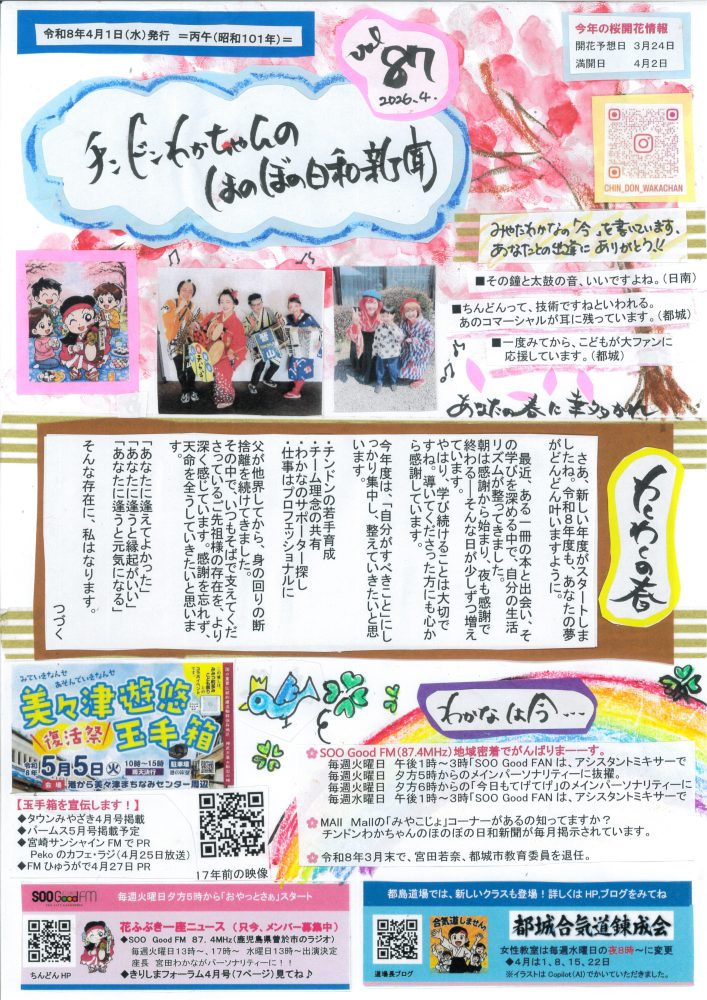 令和8年4月1日(水)発行 =丙午(昭和101年)=
vol 87
2026.4.
今年の桜開花情報
開花予想日 3月24日
満開日 4月2日
チンドンわかちゃんの
ほのぼの日和新聞
CHIN_DON_WAKACHAN
みやたわかなの「今」を書いています。
あなたとの出逢に ありがとう!!
■その鐘と太鼓の音、いいですよね。(日南)
■ちんどんって、技術ですねといわれる。
あのコマーシャルが耳に残っています。(都城)
■一度みてから、こどもが大ファンに
応援しています。(都城)
あなたの春に幸うるかれ
わくわくの春
さあ、新しい年度がスタートしま
したね。令和8年度も、あなたの夢
がどんどん叶いますように。
最近、ある一冊の本と出会い、そ
の学びを深める中で、自分の生活
リズムが整ってきました。
朝は感謝から始まり、夜も感謝で
終わる――そんな日が少しずつ増え
ています。
やはり、学び続けることは大切で
すね。導いてくださった方にも心か
ら感謝しています。
今年度は、「自分がすべきこと」にし
っかり集中し、整えていきたいと思
います。
・チンドンの若手育成
・チーム理念の共有
・わかなのサポーター探し
・仕事はプロフェッショナルに
父が他界してから、身の回りの断
捨離を続けてきました。
その中で、いつもそばで支えてくだ
さっているご先祖様の存在を、より
深く感じています。感謝を忘れず、
天命を全うしていきたいと思いま
す。
「あなたに逢えてよかった」
「あなたに逢うと縁起がいい」
「あなたに逢うと元気になる」
そんな存在に、私はなります。
つづく
みていきなんせ
あそんでいきなんせ
美々津遊悠
復活祭
玉手箱
令和8年
5月5日火
10時〜15時
雨天決行
駐車場
会場 港から美々津まちなみセンター周辺
【玉手箱を宣伝します!】
◆タウンみやざき4月号掲載
◆パームス5月号掲載予定
◆宮崎サンシャインFMでPR
Pekoのカフェ・ラジ(4月25日放送)
◆FMひゅうがで4月27日PR
17年前の映像
わかなは今…
SOO Good FM(87.4MHz)地域密着でがんばりまーーす。
毎週火曜日 午後1時〜3時「SOO Good FANは、アシスタントミキサーで
毎週火曜日 夕方5時からのメインパーソナリティーに抜擢。
毎週火曜日 夕方6時からの「今日もてげてげ」のメインパーソナリティーに
毎週水曜日 午後1時〜3時「SOO Good FANは、アシスタントミキサーで
MAll Mallの「みやこじょ」コーナーがあるの知ってますか?
チンドンわかちゃんのほのぼの日和新聞が毎月掲示されています。
令和8年3月末で、宮田若奈、都城市教育委員を退任。
SOO Good FM
毎週火曜日夕方5時から「おやっとさぁ」スタート
花ふぶき一座ニュース (只今、メンバー募集中)
◆SOO Good FM 87.4MHz(鹿児島県曽於市のラジオ)
毎週火曜日13時〜、17時〜 水曜日13時〜出演決定
座長 宮田わかながパーソナリティーに!!
◆きりしまフォーラム4月号(7ページ)見てね♪
ちんどんHP
都島道場では、新しいクラスも登場!詳しくはHP,ブログをみてね
合気道しませんか
都城合気道錬成会
女性教室は毎週水曜日の夜8時〜に変更
◆4月は1、8、15、22日
※イラストはCopilot(AI)でかいていただきました。
道場長ブログ